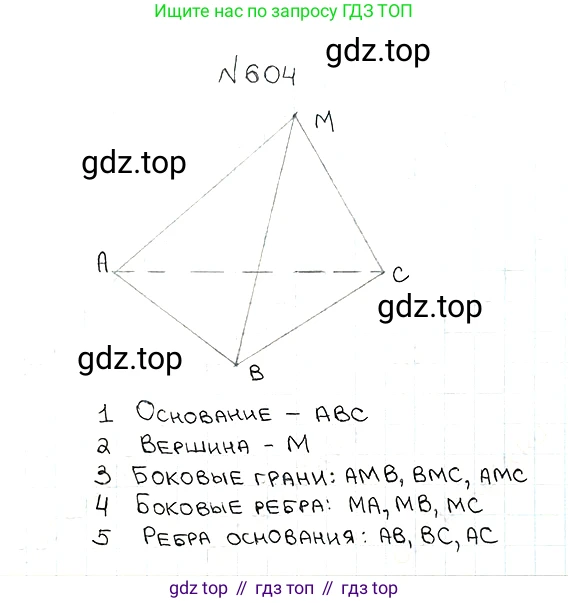 Ищите нас по запросу ГДЗ ТОП
gdz.top
№604
M
gdz.top
A
C
gdz.top
gdz.top
B
1 Основание - ABC
2 Вершина - M
3 Боковые грани: AMB, BMC, AMC
4 Боковые ребра: MA, MB, MC
5 Ребра основания: AB, BC, AC
gdz.top // гдз топ // гдз top